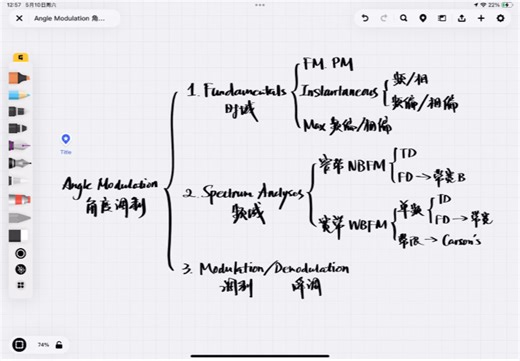 12:57 5月10日周六
22%
Angle Modulation 角...
1. Fundamentals
时域
FM. PM
Instantaneous
频/相
频偏/相偏
Max 频偏/相偏
Title
Angle Modulation
角度调制
2. Spectrum Analyses
频域
窄带 NBFM
TD
FD → 带宽 B
宽带 WBFM
单频
TD
FD → 带宽
带限 → Carson's
3. Modulation/Demodulation
调制 解调
74%